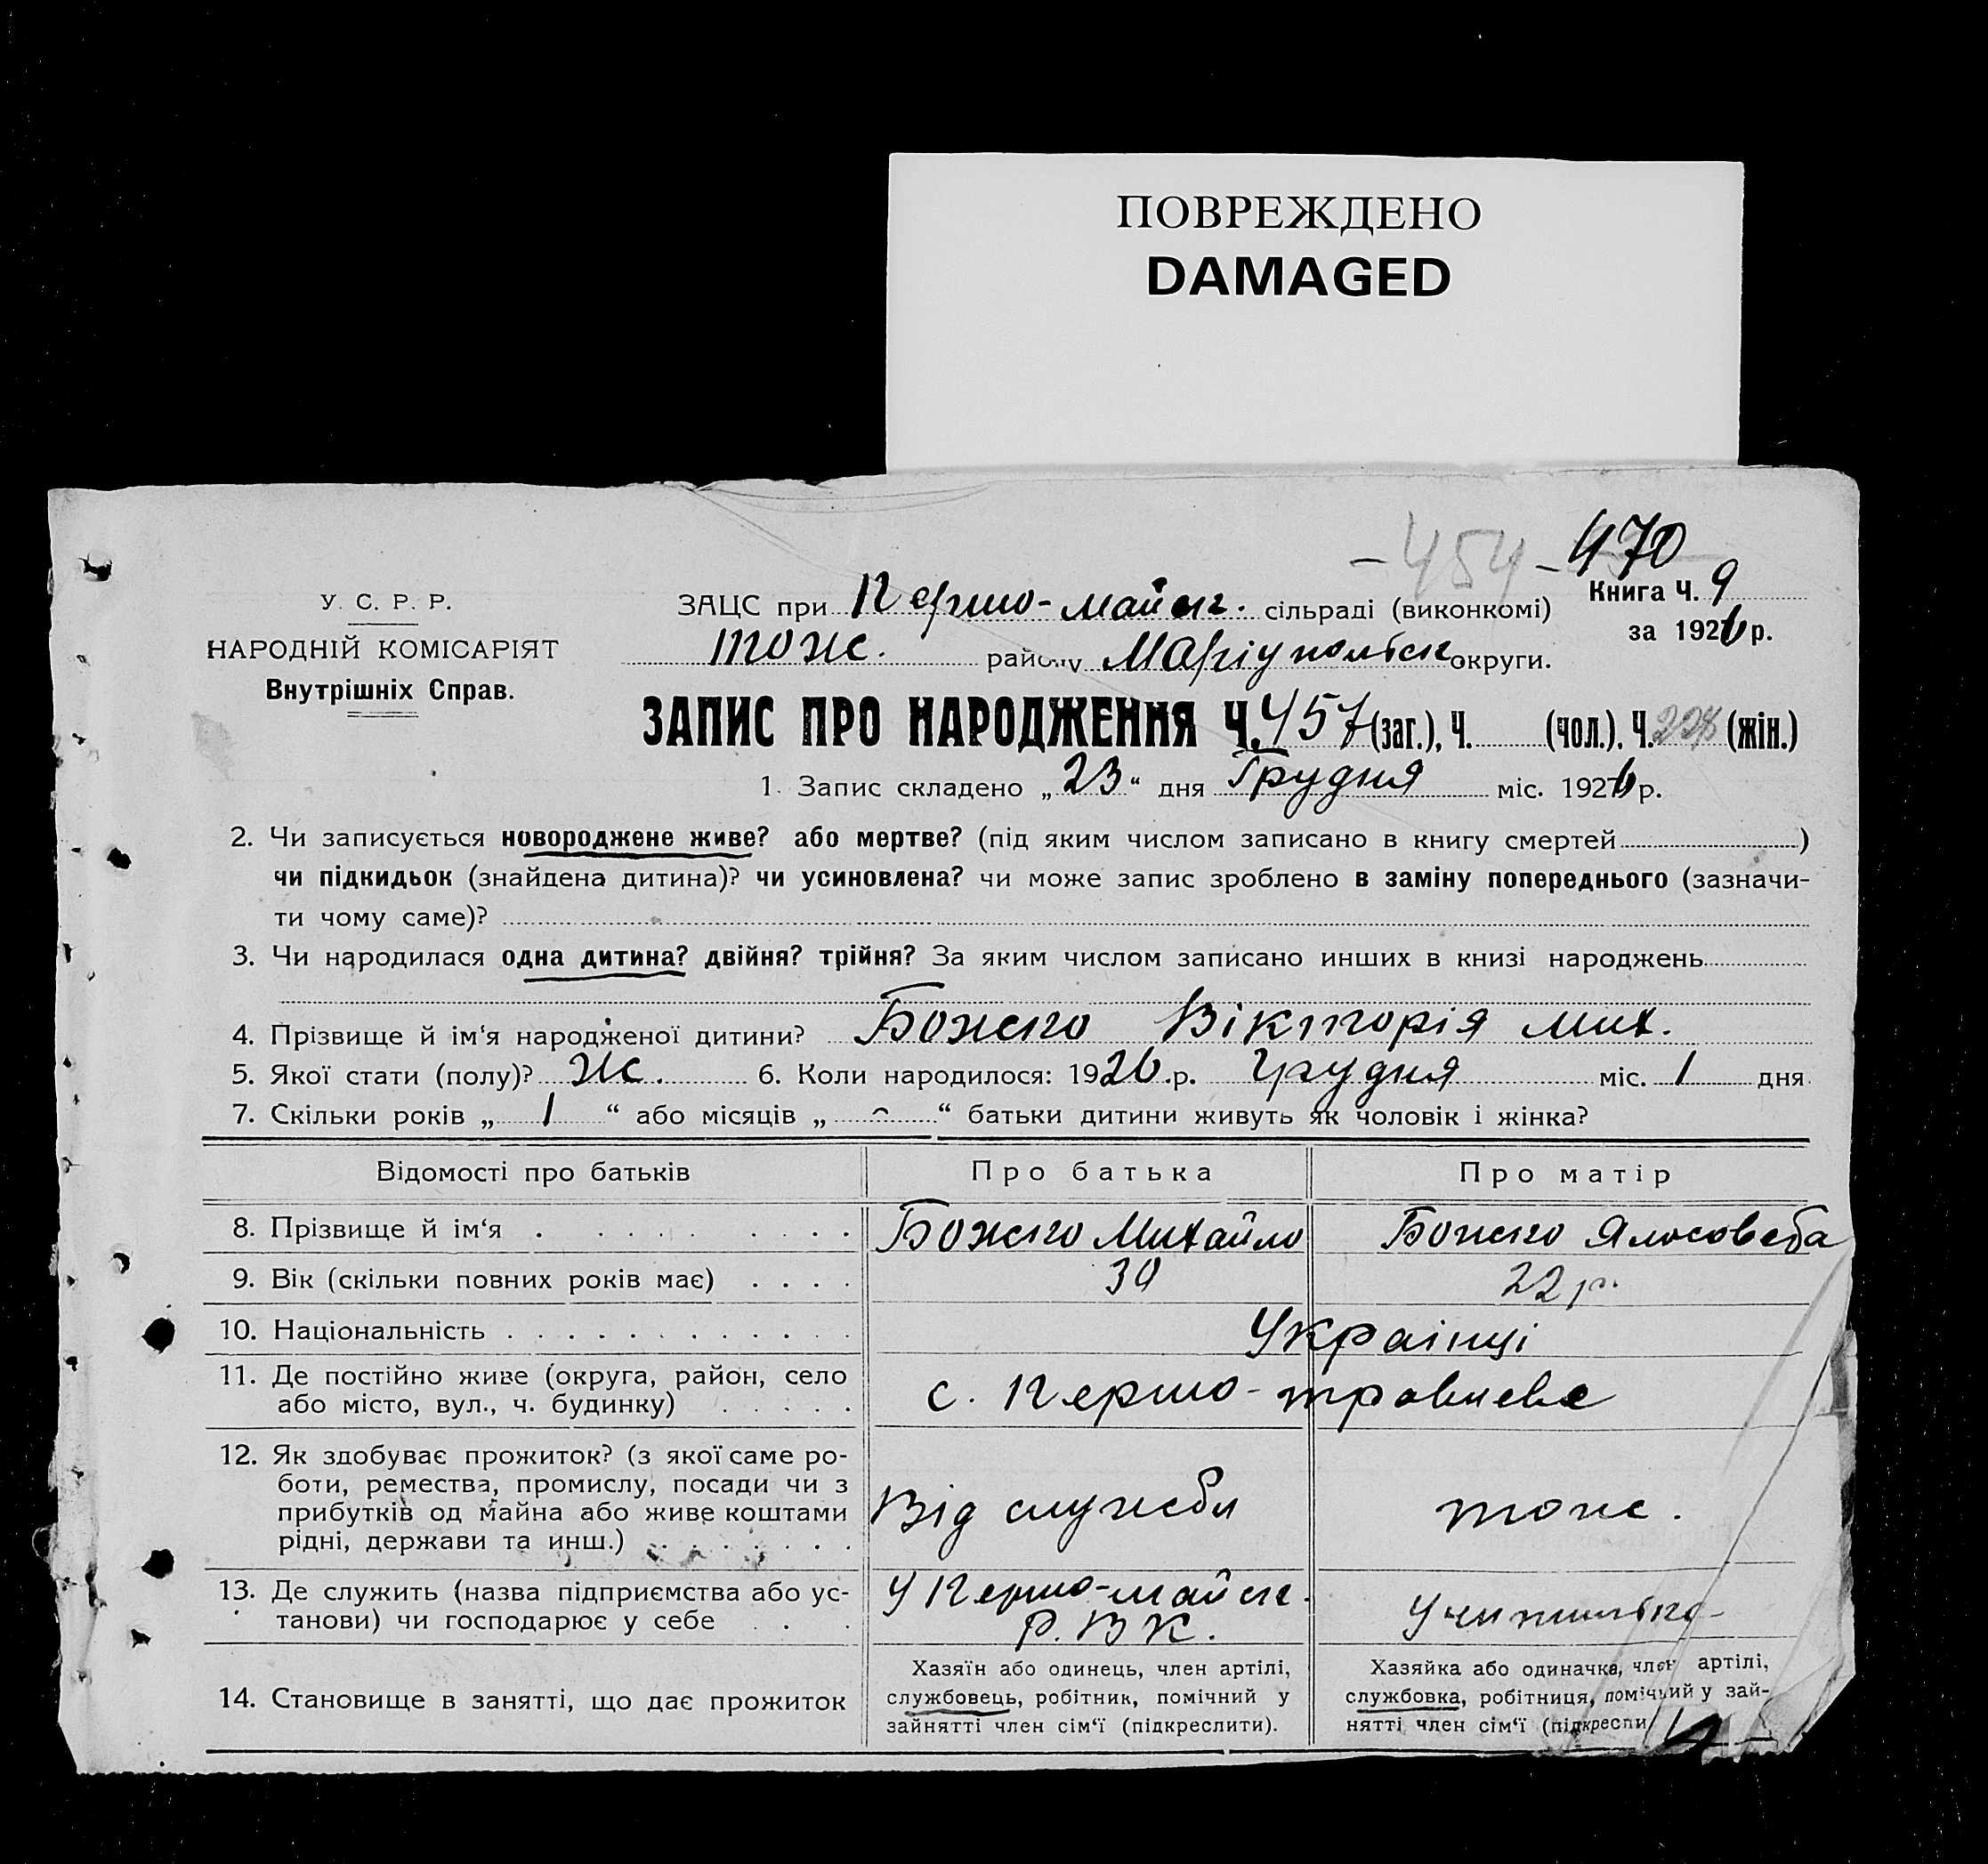 ПОВРЕЖДЕНО
DAMAGED
- 454 - 470
У. С. Р. Р.
НАРОДНІЙ КОМІСАРІЯТ
Внутрішніх Справ.
ЗАЦС при Першо-майськ. сільраді (виконкомі)
тож. району Маріупольськ округи.
Книга Ч. 9
за 1926 р.
ЗАПИС ПРО НАРОДЖЕННЯ Ч. 457 (заг.), Ч. (чол.). Ч. 228 (жін.)
1. Запис складено „ 23 “ дня Грудня міс. 1926 р.
2. Чи записується новороджене живе? або мертве? (під яким числом записано в книгу смертей )
чи підкидьок (знайдена дитина)? чи усиновлена? чи може запис зроблено в заміну попереднього (зазначи-
ти чому саме)?
3. Чи народилася одна дитина? двійня? трійня? За яким числом записано инших в книзі народжень
4. Прізвище й ім‘я народженої дитини? Божко Вікторія Мих.
5. Якої стати (полу)? Ж. 6. Коли народилося: 1926 .р. Грудня міс. 1 дня.
7. Скільки років „ 1 “ або місяців „ - “ батьки дитини живуть як чоловік і жінка?
Відомості про батьків Про батька Про матір
8. Прізвище й ім‘я . . . . . Божко Михайло Божко Ялосовета
9. Вік (скільки повних років має) . . . . 30 22 р.
10. Національність . . . . . . . . . . . . Українці
11. Де постійно живе (округа, район, село
або місто, вул., ч. будинку) . . . . . с. Першо-травневе
12. Як здобуває прожиток? (з якої саме ро-
боти, ремества, промислу, посади чи з
прибутків од майна або живе коштами
рідні, держави та инш.) . . . . . . . Від служби тож.
13. Де служить (назва підприємства або ус-
танови) чи господарює у себе . . . У Першо-майськ. Р.В.К. Учителька
14. Становище в занятті, що дає прожиток
Хазяїн або одинець, член артілі,
службовець, робітник, помічний у
зайнятті член сім‘ї (підкреслити).
Хазяйка або одиначка, член артілі,
службовка, робітниця, помічний у зай-
нятті член сім‘ї (підкресли